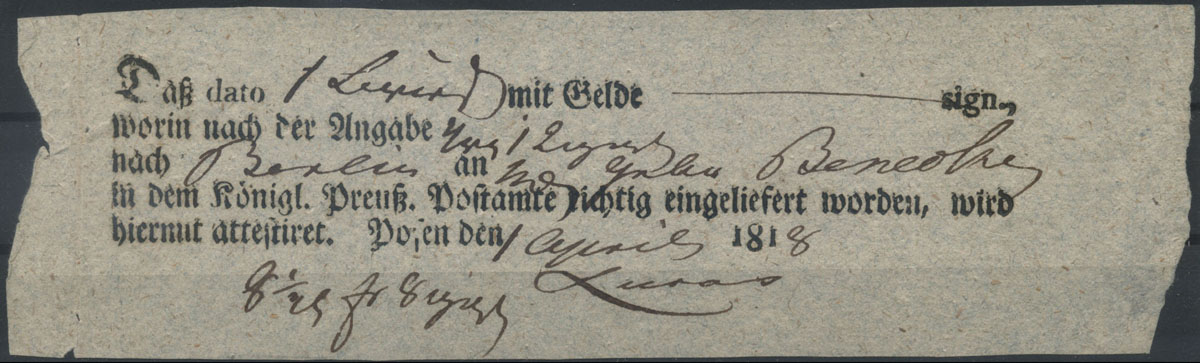 Daß dato 1 mit Gelde sign.,
worin nach der Angabe
nach Berlin an Benecke
in dem Königl. Preuß. Postamte richtig eingeliefert worden, wird
hiermit attestiret. Posen den 1 April 1818
Lucas